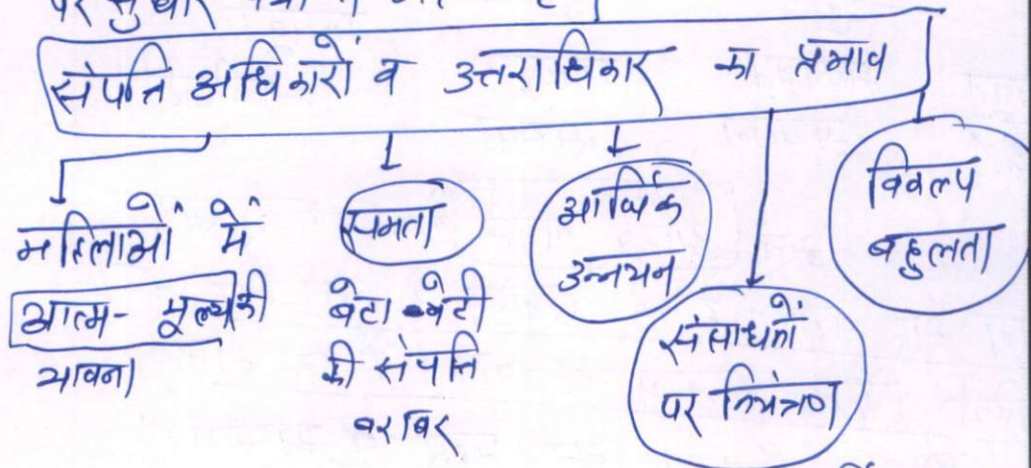 पर सुधार
संपत्ति अधिकारों व उत्तराधिकार का प्रभाव
महिलाओं में
आत्म-मूल्य की
भावना
समता
बेटा-बेटी
की संपत्ति
बराबर
आर्थिक
उन्नयन
संसाधनों
पर नियंत्रण
विकल्प
बहुलता